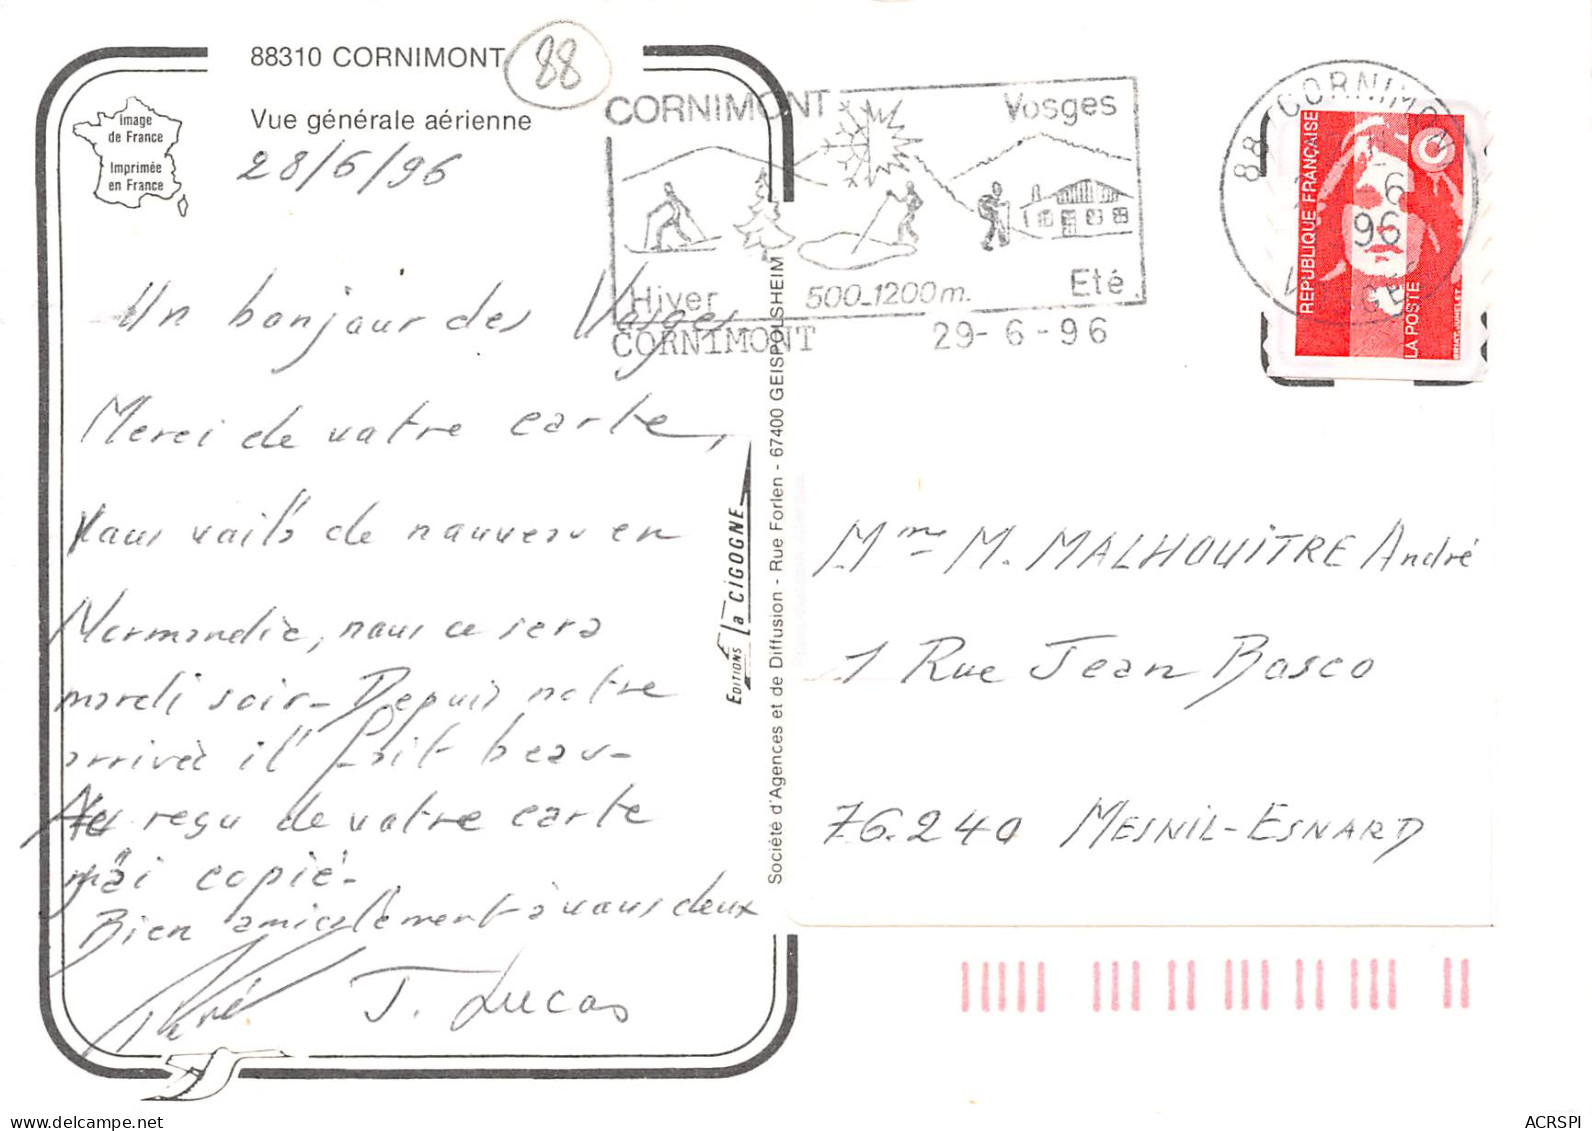 88310 CORNIMONT
88
Vue générale aérienne
28/6/96
Image
de France
Imprimée
en France
Un bonjour des Vosges
Merci de votre carte,
Vous voilà de nouveau en
Normandie, nous ce sera
mardi soir - Depuis notre
arrivée il fait beau -
Au reçu de votre carte
j'ai copié -
Bien amicalement à vous deux
J. Lucas
CORNIMONT Vosges
Hiver 500-1200m. Eté
CORNIMONT 29-6-96
88 CORNIMONT
-6
96
VOSGES
RÉPUBLIQUE FRANÇAISE
LA POSTE
BRIAT-JUMELET
EDITIONS La CIGOGNE
Société d'Agences et de Diffusion - Rue Forlen - 67400 GEISPOLSHEIM
Mme M. MALHOUITRE André
1 Rue Jean Basco
76.240 MESNIL-ESNARD
ACRSPI